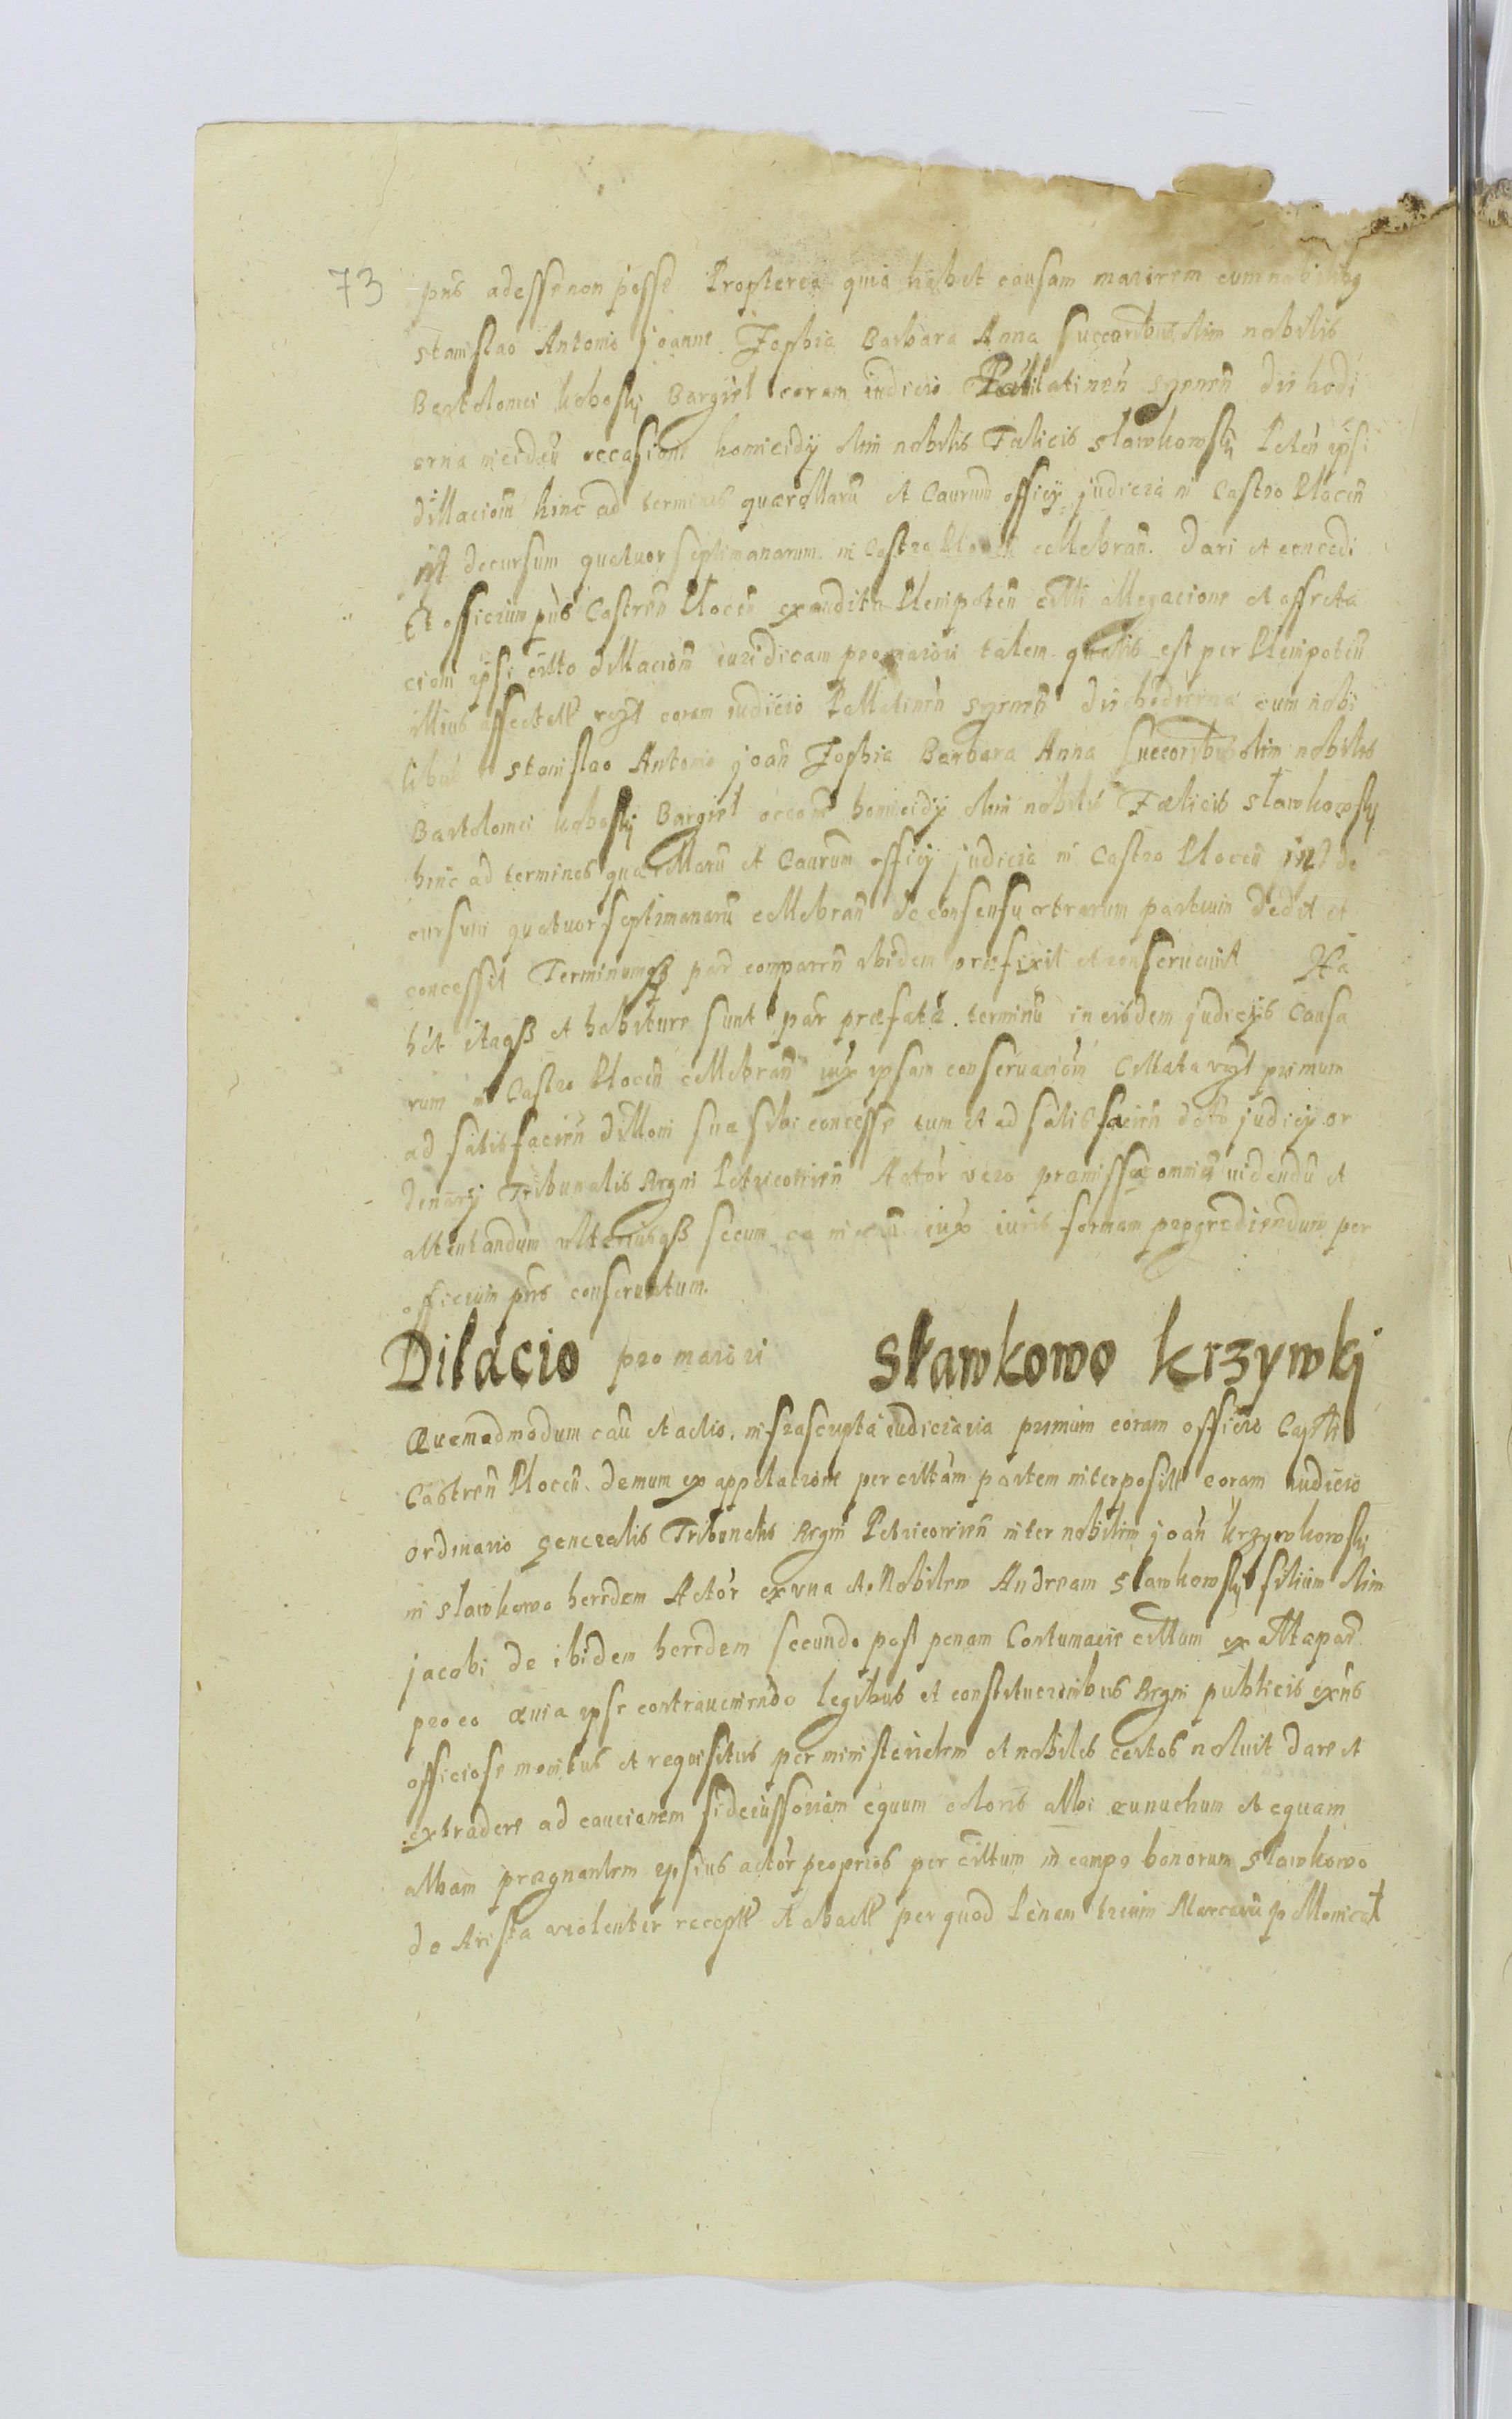 73
pns adesse non posse Propterea quia habet causam maiorem cum nobilibq
stanislao Antonio joanne Zophia Barbara Anna Succoribus olim nobilis
Bartolomei kobosky Bargiel coram iudicio Pallatinen syenen die hodi
erna inciden occasione homicidy olim nobilis Falicis slawkowsky Peten ipsi
dillaciom hinc ad terminos quaerellaru et Caurum officy judicia in Castro Plocen
decursum quatuor septimanarum in Castro Plocen cellebran. Dari et concedi
Et officium pns Castren Plocen exaudita Plenipoten citti allegacione et affecta
ciom ipsi citto dillaciom iuridicam pro maiori talem qualis est per Plenipoten
illius affectatt coram iudicio Pallatinen syenen die hodierna cum nobi
libus stanislao Antonio joan Zophia Barbara Anna Succoribus olim nobilis
Bartolomei kobosky Bargiel occone homicidy olim nobilis Faelicis sławkowsky
hinc ad terminos quaerellaru et Caurum officy judicia in Castro Plocen de
cursum quatuor septimanaru cellebran de consensu utrarum partium Dedit et
concessit Terminumqß par comparen ibidem praefixit et conseruauit Ha
bit itaqß et habiture sunt par praefatae terminu in eisdem judicijs Causa
rum in Castro Plocen cellebran iux ipsam conseruaciom Cittata primum
ad satisfacien dilloni suae sibi concesse tum et ad satisfacien dcto judicij or
dinarij Tribunalis Regni Petricouien Actor vero praemissa omnia uidendu et
attentandum ulteriusqß secum ea in iux iuris formam progrediendum per
officium pns conseruatum.
Dilacio pro maiori sławkowo krzywkj
Quemadmodum cau et actio infrascripta iudiciaria primum coram officio
Castren Plocen demum ex appellacione per cittam partem interposit coram iudicio
ordinario generalis Tribunalis Regni Petricouien inter nobilem joan krzywkowsky
in slawkowo herrdem Actor ex vna et Nobilem Andream slawkowsky filium olim
jacobi de ibidem herrdem secundo post penam Contumacie cittum ex altta par
pro eo quia ipse contraueniendo legibus et constitucionibus Regni publicis exns
officiose monitus et requisitus per ministerialem et nobiles certos noluit dare et
extradere ad caucionem fideiussoriam equum coloris albi eunuchum et equam
albam praegnantem ipsius actor proprios per cittum in campo bonorum slawkowo
do Arista violenter recept et abact per quod Penam trium Marcaru